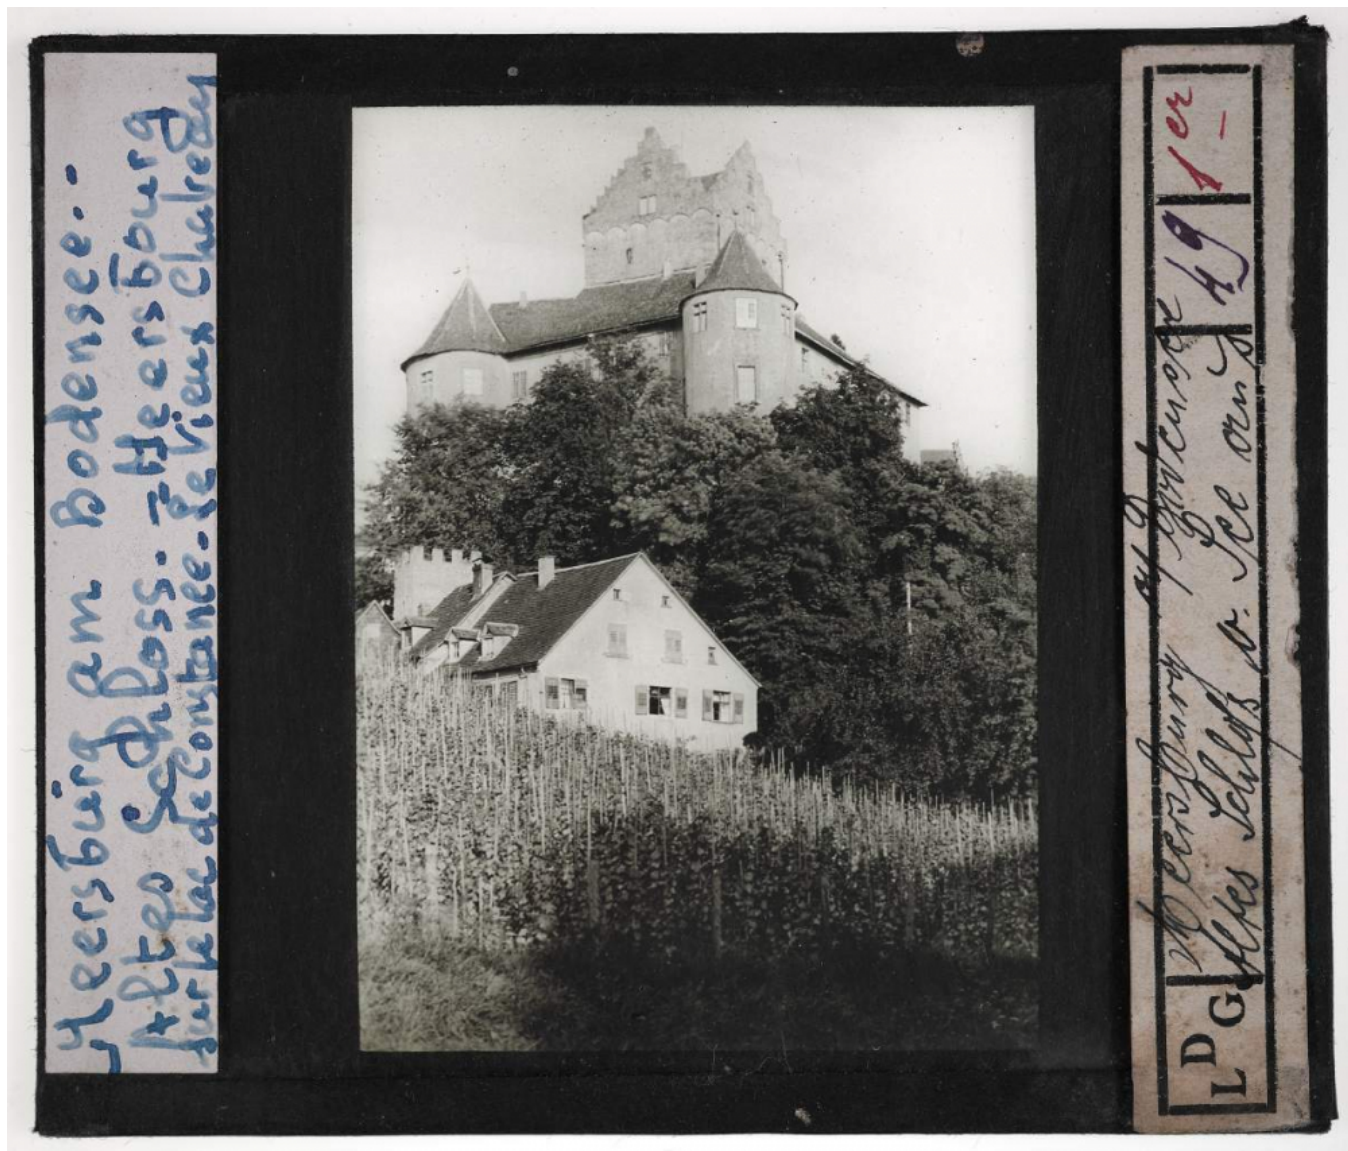 Meersburg am Bodensee..
Altes Schloss.-Meersbourg
sur le lac de Constance.-Le Vieux
Meersburg Bodensee 49 1er
Altes Schloß v. See aus
LDG